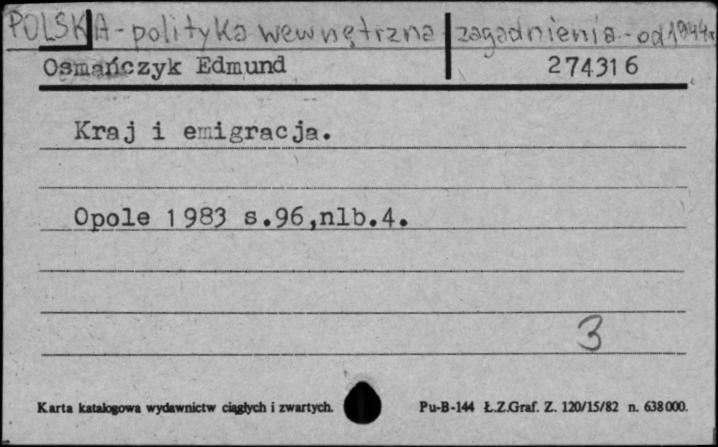 POLSKA - polityka wewnętrzna - zagadnienia - od 1944r
Osmańczyk Edmund 274316
Kraj i emigracja.
Opole 1983 s.96,nlb.4.
3
Karta katalogowa wydawnictw ciągłych i zwartych. Pu-B-144 Ł.Z.Graf. Z. 120/15/82 n. 638000.